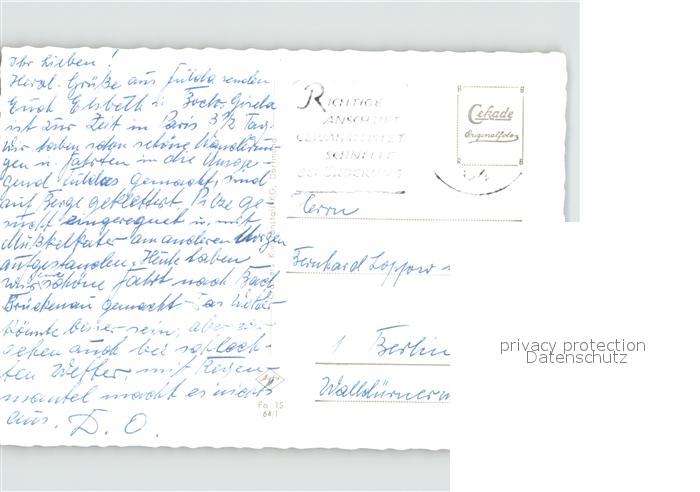 Ihr Lieben!
Herzl. Grüße aus Fulda senden
Euch Elsbeth u. Gisela
ist zur Zeit in Paris 3 1/2 Tag.
Wir haben schon schöne Wanderun-
gen u. Fahrten in die Umge-
gend Fuldas gemacht, sind
auf Berge geklettert. Pilze ge-
sucht eingeregnet u. mit
Muskelkater am anderen Morgen
aufgestanden. Heute haben
wir eine schöne Fahrt nach Bad
Brückenau gemacht. Das Wetter
könnte besser sein, aber wir
gehen auch bei schlech-
ten Wetter, mit Regen-
mantel macht es nichts
aus. D. O.
RICHTIGE
ANSCHRIFT
GEWÄHRLEISTET
SCHNELLE
BEFÖRDERUNG
Cekade
Originalfoto
Herrn
Bernhard Loppow
1 Berlin
Walldürner
Fa 15
64/1
privacy protection
Datenschutz